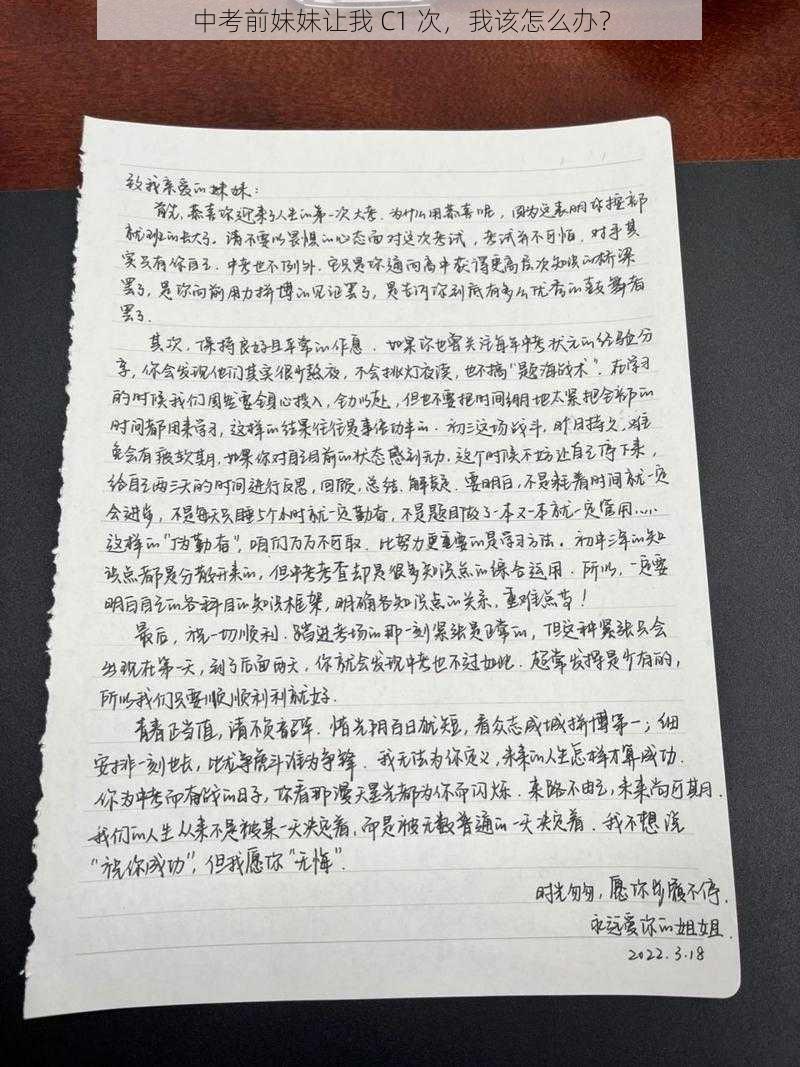 中考前妹妹让我 C1 次，我该怎么办？
致我亲爱的妹妹：
首先，恭喜你迎来了人生的第一次大考．为什么用恭喜呢，因为这表明你按部
就班的长大了。请不要以畏惧的心态面对这次考试，考试并不可怕．对手其
实只有你自己．中考也不例外．它只是你通向高中获得更高层次知识的桥梁
罢了，是你向前用力拼博的见证罢了，是告诉你到底有多么优秀的鼓舞者
罢了．
其次，保持良好且平常的作息．如果你也曾关注每年中考状元的经验分
享，你会发现他们其实很少熬夜，不会挑灯夜读，也不搞“题海战术”．在学习
的时候我们固然要全身心投入，全力以赴，但也不要把时间绷地太紧把全部的
时间都用来学习，这样的结果往往是事倍功半的．初三这场战斗，时日持久，难
免会有疲软期，如果你对自己目前的状态感到无力．这个时候不妨让自己停下来，
给自己两三天的时间进行反思，回顾，总结．解疑．要明白，不是耗着时间就一定
会进步，不是每天只睡5个小时就一定勤奋，不是题目做了一本又一本就一定管用……
这样的“伪勤奋”，咱们万万不可取．比努力更重要的是学习方法．初中三年的知
识点都是分散开来的，但中考考查却是很多知识点的综合运用．所以，一定要
明白自己的各科目的知识框架，明确各知识点的关系，重难点等！
最后，祝一切顺利．踏进考场的那一刻紧张是正常的，但这种紧张只会
出现在第一天，到了后面两天，你就会发现中考也不过如此．超常发挥是少有的，
所以我们只要顺顺利利就好．
青春正当值，请不负韶华．惜光阴百日犹短，看众志成城拼博第一；细
安排一刻也长，比龙争虎斗谁为争锋．我无法为你定义，未来的人生怎样才算成功．
你为中考而奋战的日子，你看那漫天星光都为你而闪烁．来路不由己，未来尚可其月．
我们的人生从来不是被某一天决定着，而是被无数普通的一天决定着．我不想说
“祝你成功”，但我愿你“无悔”．
时光匆匆，愿你步履不停．
永远爱你的姐姐．
2022.3.18